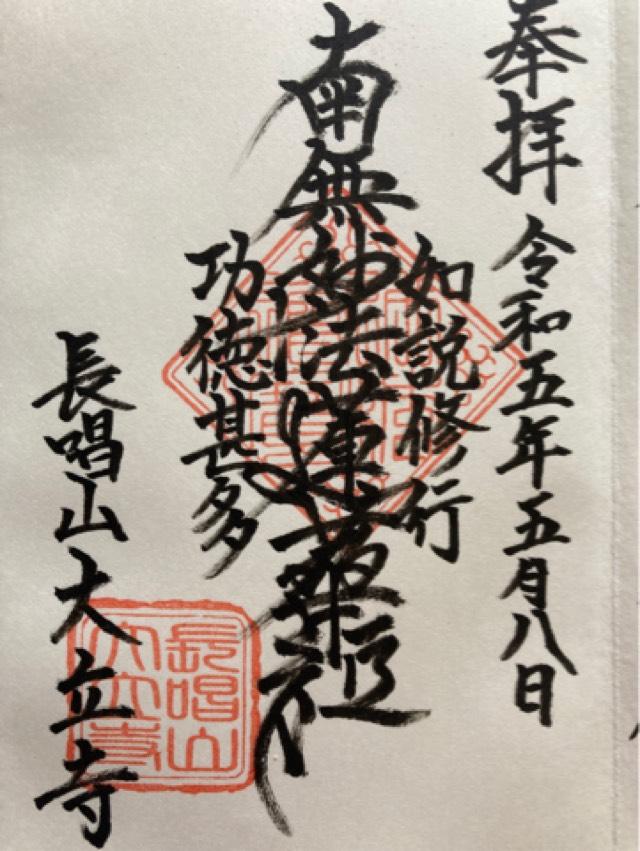 奉拝 令和五年五月八日
如説修行
南無妙法蓮華経
功徳甚多
長唱山大立寺
長唱山
大立寺